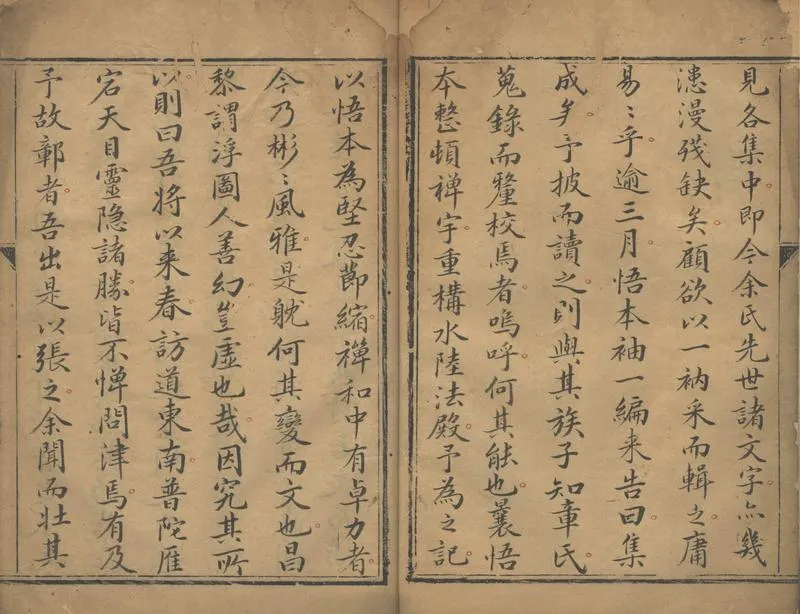 見各集中即今余氏先世諸文字亦幾
漶漫殘缺矣顧欲以一衲采而輯之庸
易〻乎逾三月悟本袖一編来告曰集
成矣予披而讀之則與其族子知章氏
蒐錄而釐校焉者嗚呼何其能也曩悟
本整頓禅宇重構水陸法殿予為之記
以悟本為堅忍節縮禅和中有卓力者
今乃彬〻風雅是躭何其變而文也昌
黎謂浮圖人善幻豈虛也哉因究其所
以則曰吾將以来春訪道東南普陀雁
宕天目靈隐諸勝皆不憚問津焉有及
予故鄣者吾出是以張之余聞而壯其